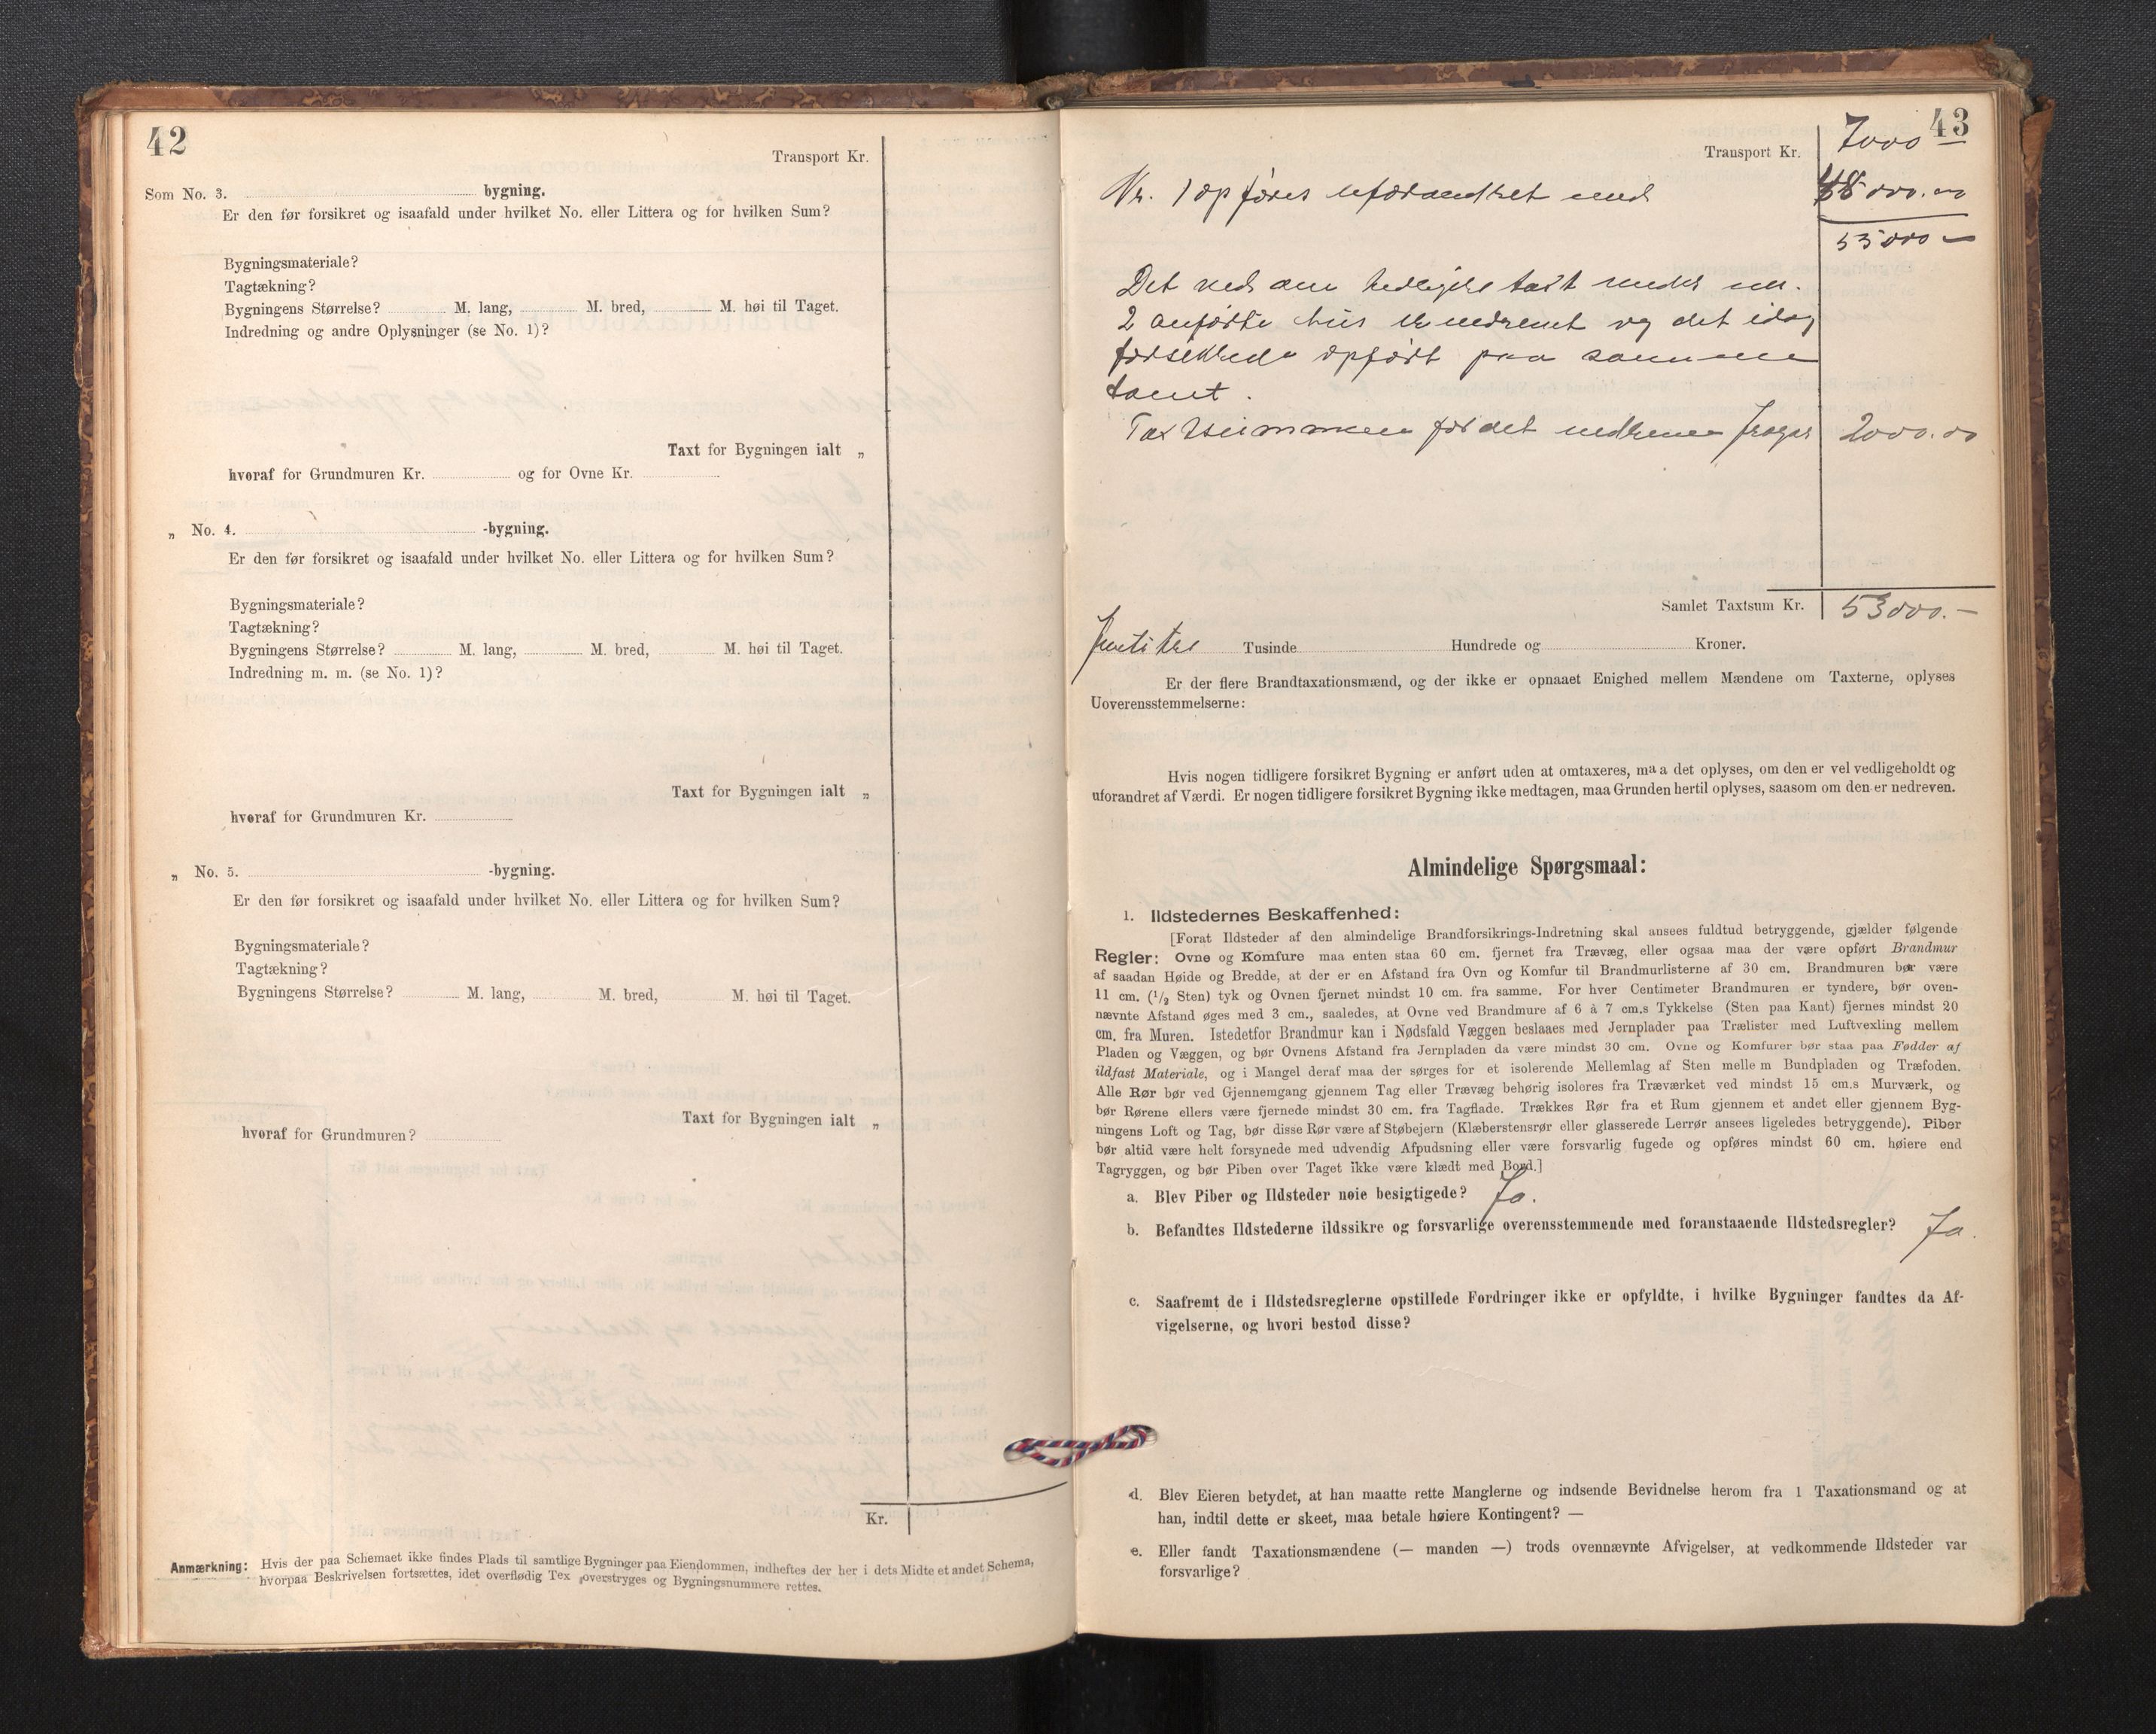 42
Transport Kr.
Som No. 3. bygning.
Er den før forsikret og isaafald under hvilket No. eller Littera og for hvilken Sum?
Bygningsmateriale?
Tagtækning?
Bygningens Størrelse? M. lang, M. bred, M. høi til Taget.
Indredning og andre Oplysninger (se No. 1)?
Taxt for Bygningen ialt „
hvoraf for Grundmuren Kr. og for Ovne Kr.
„ No. 4. -bygning.
Er den før forsikret og isaafald under hvilket No. eller Littera og for hvilken Sum?
Bygningsmateriale?
Tagtækning?
Bygningens Størrelse? M. lang, M. bred, M. høi til Taget.
Indredning m. m. (se No. 1)?
Taxt for Bygningen ialt „
hvoraf for Grundmuren Kr.
„ No. 5. -bygning.
Er den før forsikret og isaafald under hvilket No. eller Littera og for hvilken Sum?
Bygningsmateriale?
Tagtækning?
Bygningens Størrelse? M. lang, M. bred, M. høi til Taget.
Taxt for Bygningen ialt „
hvoraf for Grundmuren?
Kr.
Anmærkning: Hvis der paa Schemaet ikke findes Plads til samtlige Bygninger paa Eiendommen, indheftes der her i dets Midte et andet Schema,
hvorpaa Beskrivelsen fortsættes, idet overflødig Tex overstryges og Bygningsnummere rettes.
43
Transport Kr. 7000
Nr. 1 opføres uforandret med
53000 –
Det ved den tidligere taxt under
2 anførte hus er nedrevet og det idag
forsikrede opført paa samme
tomt.
Taxtsummen for det nedrevne 2000.00
Samlet Taxtsum Kr. 53000.–
Femtitre Tusinde Hundrede og Kroner.
Er der flere Brandtaxationsmænd, og der ikke er opnaaet Enighed mellem Mændene om Taxterne, oplyses
Uoverensstemmelserne:
Hvis nogen tidligere forsikret Bygning er anført uden at omtaxeres, maa det oplyses, om den er vel vedligeholdt og
uforandret af Værdi. Er nogen tidligere forsikret Bygning ikke medtagen, maa Grunden hertil oplyses, saasom om den er nedreven.
Almindelige Spørgsmaal:
1. Ildstedernes Beskaffenhed:
[Forat Ildsteder af den almindelige Brandforsikrings-Indretning skal ansees fuldtud betryggende, gjælder følgende
Regler: Ovne og Komfure maa enten staa 60 cm. fjernet fra Trævæg, eller ogsaa maa der være opført Brandmur
af saadan Høide og Bredde, at der er en Afstand fra Ovn og Komfur til Brandmurlisterne af 30 cm. Brandmuren bør være
11 cm. (1/2 Sten) tyk og Ovnen fjernet mindst 10 cm. fra samme. For hver Centimeter Brandmuren er tyndere, bør oven-
nævnte Afstand øges med 3 cm., saaledes, at Ovne ved Brandmure af 6 à 7 cm.s Tykkelse (Sten paa Kant) fjernes mindst 20
cm. fra Muren. Istedetfor Brandmur kan i Nødsfald Væggen beslaaes med Jernplader paa Trælister med Luftvexling mellem
Pladen og Væggen, og bør Ovnens Afstand fra Jernpladen da være mindst 30 cm. Ovne og Komfurer bør staa paa Fødder af
ildfast Materiale, og i Mangel deraf maa der sørges for et isolerende Mellemlag af Sten mellem Bundpladen og Træfoden.
Alle Rør bør ved Gjennemgang gjennem Tag eller Trævæg behørig isoleres fra Træværket ved mindst 15 cm.s Murværk, og
bør Rørene ellers være fjernede mindst 30 cm. fra Tagflade. Trækkes Rør fra et Rum gjennem et andet eller gjennem Byg-
ningens Loft og Tag, bør disse Rør være af Støbejern (Klæberstensrør eller glasserede Lerrør ansees ligeledes betryggende). Piber
bør altid være helt forsynede med udvendig Afpudsning eller være forsvarlig fugede og opføres mindst 60 cm. høiere end
Tagryggen, og bør Piben over Taget ikke være klædt med Bord.]
a. Blev Piber og Ildsteder nøie besigtigede? Ja.
b. Befandtes Ildstederne ildssikre og forsvarlige overensstemmende med foranstaaende Ildstedsregler? Ja.
c. Saafremt de i Ildstedsreglerne opstillede Fordringer ikke er opfyldte, i hvilke Bygninger fandtes da Af-
vigelserne, og hvori bestod disse?
d. Blev Eieren betydet, at han maatte rette Manglerne og indsende Bevidnelse herom fra 1 Taxationsmand og at
han, indtil dette er skeet, maa betale høiere Kontingent? —
e. Eller fandt Taxationsmændene (— manden —) trods ovennævnte Afvigelser, at vedkommende Ildsteder var
forsvarlige?